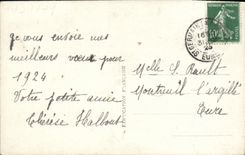 je vous envoie mes
meilleurs vœux pour
1924
Votre petite amie
Thérèse Halbout
Melle S. Rault
Montreuil l'argillé
Eure